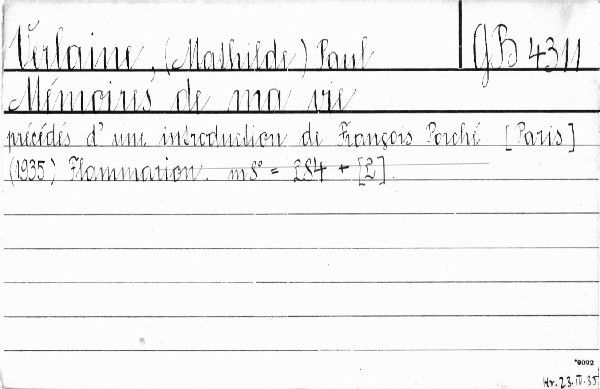 Verlaine, (Mathilde) Paul
GB 4311
Mémoires de ma vie
précédés d'une introduction de François Porché [Paris]
(1935) Flammarion. in 8° = 284 + [2].
*9092
Hr. 23.IV.35